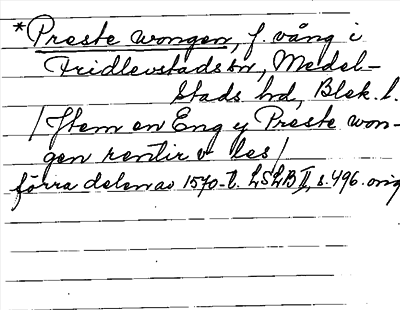 *Preste wongen, f. vång i
Fridlevstads sn, Medel-
stads hd, Blek. l.
/Item en Eng y Preste won-
gen rentir v les/
förra delen av 1570-t. LSLB II, s. 496. orig